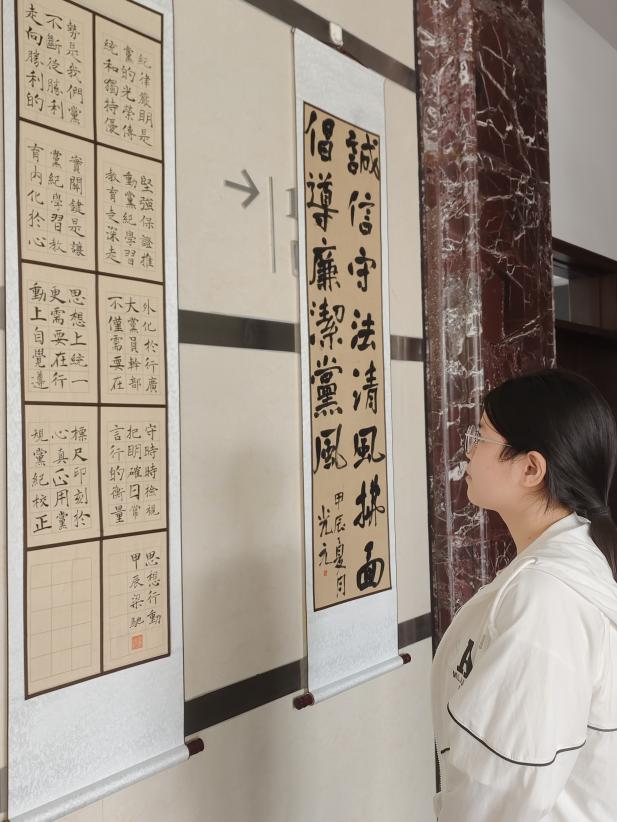 誠信守法清風拂面
倡導廉潔黨風
甲辰夏月
光元
紀律嚴明是
黨的光榮傳
統和獨特優
勢是我們黨
不斷從勝利
走向勝利的
堅強保證推
動黨紀學習
教育走深走
實關鍵是讓
黨紀學習教
育內化於心
外化於行廣
大黨員幹部
不僅需要在
思想上統一
更需要在行
動上自覺遵
守時時檢視
把明確日常
言行的衡量
標尺印刻於
心真正用黨
規黨紀校正
思想行動
甲辰梁馳